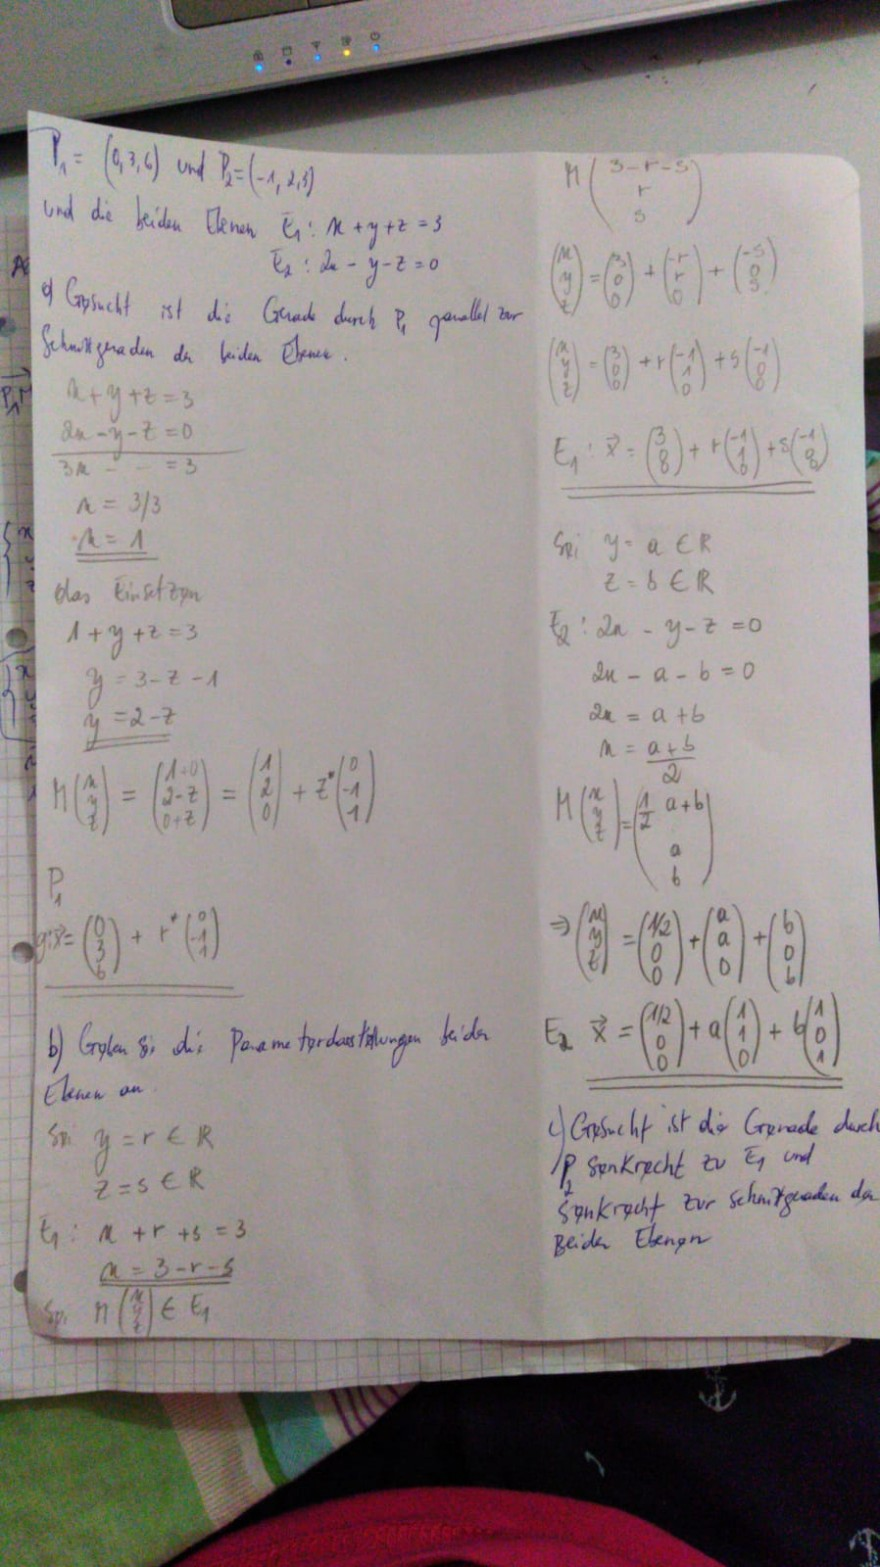 P₁ = (0,3,6) und P₂=(-1,2,3)
und die beiden Ebenen E₁: x+y+z=3
E₂: 2x-y-z=0
a) Gesucht ist die Gerade durch P₁ parallel zur
Schnittgeraden der beiden Ebenen.
x+y+z=3
2x-y-z=0
3x - - =3
x = 3/3
x = 1
das Einsetzen
1+y+z=3
y = 3-z-1
y = 2-z
M (x y z) = (1+0 2-z 0+z) = (1 2 0) + z* (0 -1 1)
P₁
g: x⃗ = (0 3 6) + r* (0 -1 1)
b) Geben Sie die Parameterdarstellungen beider
Ebenen an.
Sei y = r ∈ ℝ
z = s ∈ ℝ
E₁: x+r+s=3
x = 3-r-s
Sei M (x y z) ∈ E₁
M (3-r-s r s)
(x y z) = (3 0 0) + (-r r 0) + (-s 0 s)
(x y z) = (3 0 0) + r (-1 1 0) + s
E₁: x⃗ = (3 0 0) + r (-1 1 0) + s
Sei y = a ∈ ℝ
z = b ∈ ℝ
E₂: 2x - y - z = 0
2x - a - b = 0
2x = a+b
x = a+b
2
M (x y z) = (1/2 a+b a b)
⇒ (x y z) = (1/2 0 0) + (a a 0) + (b 0 b)
E₂ x⃗ = (1/2 0 0) + a (1 1 0) + b (1 0 1)
c) Gesucht ist die Gerade durch
P₂ senkrecht zu E₁ und
senkrecht zur Schnittgeraden der
Beiden Ebenen